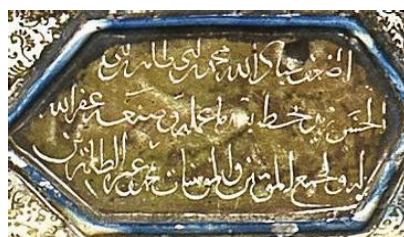 اضعف عباد الله محمد بن ابى طاهر بن ابى
الحسن زيد بخطه بعد ما عمله و صنعه غفر الله
له ولجميع المؤمنين والمؤمنات بمحمد وعترته الطاهرين